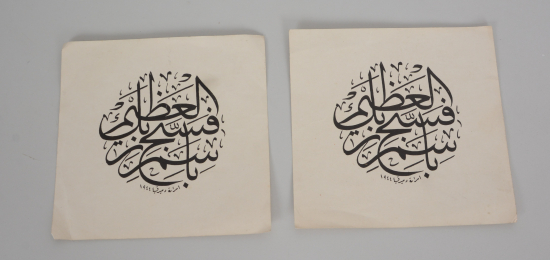 فسبح باسم ربك العظيم
١٩٤٤
فسبح باسم ربك العظيم
١٩٤٤